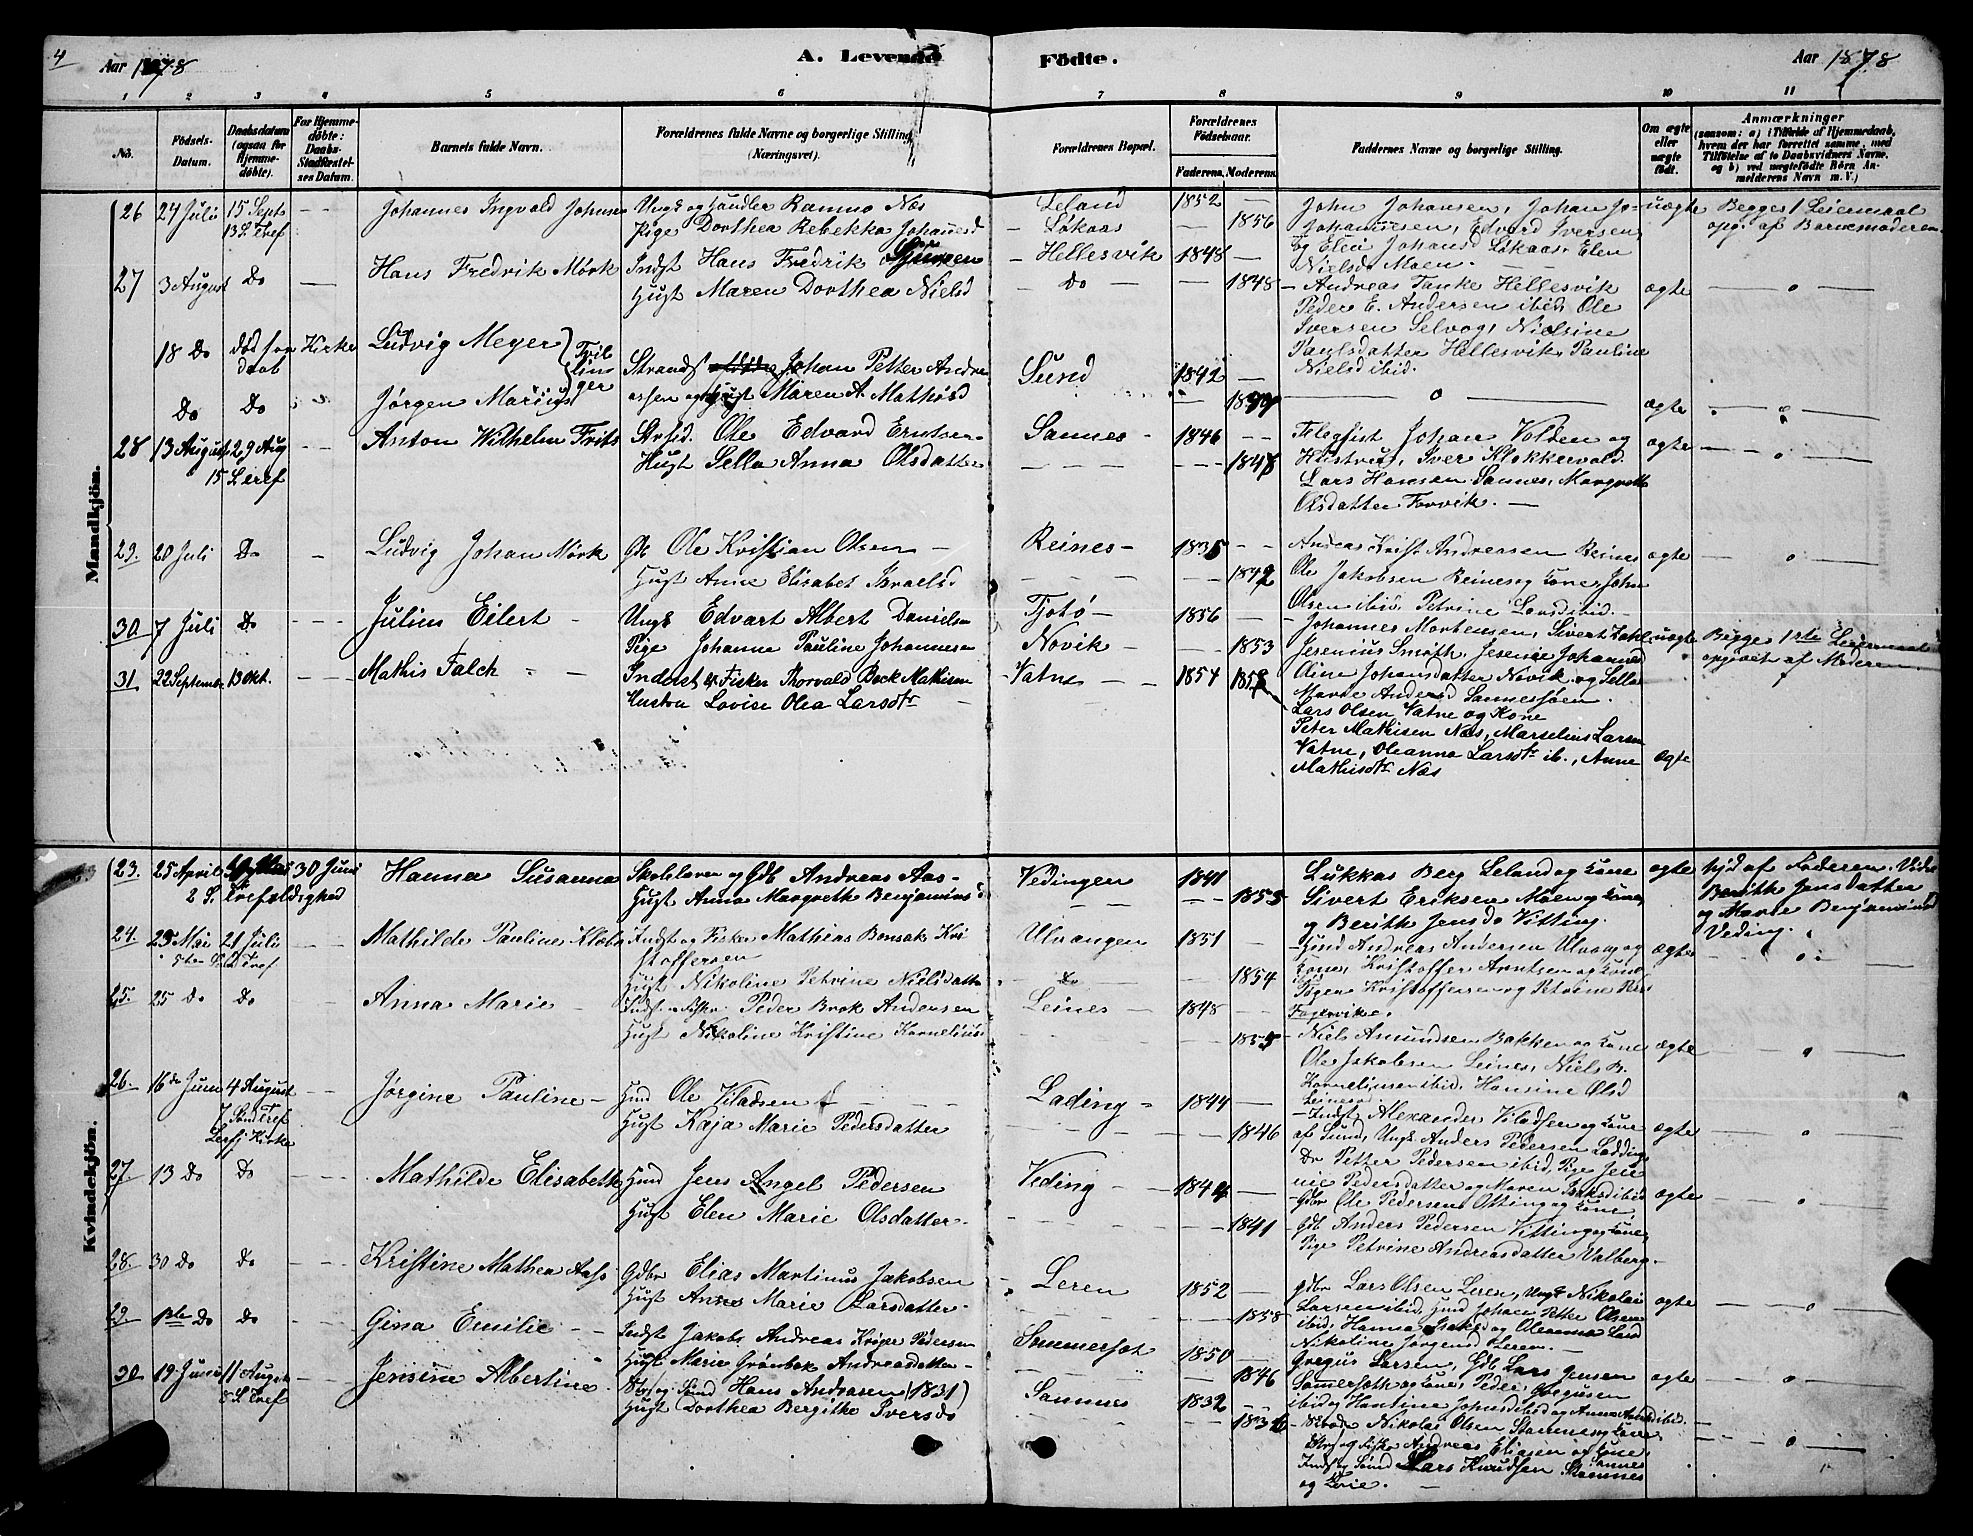 4
Aar 1878
A. Levende
Födte.
Aar 1878
1 2 3 4 5 6 7 8 9 10 11
No.
Födsels-Datum.
Daabsdatum (ogsaa for Hjemme-döbte).
For Hjemme-döbte: Daabs-Stadfæstel-ses Datum.
Barnets fulde Navn.
Forældrenes fulde Navne og borgerlige Stilling (Næringsvei).
Forældrenes Bopæl.
Forældrenes Födselsaar.
Faderens. Moderens.
Faddernes Navne og borgerlige Stilling.
Om ægte eller uægte födt.
Anmærkninger
(saasom: a) i Tilfælde af Hjemmedaab,
hvem der har forrettet samme, med
Tilföielse af to Daabsvidners Navne,
og b) ved uægtefödte Börn An-
melderens Navn m. V.)
Mandkjön.
26 24 Juli 15 Sept 13 S. Tref -- Johannes Ingvald Johnsen
Ungk og Handler Rasmus Næs
Pige Dorthea Rebekka Johannesd
Leland 1852
Løkaas 1856
John Johansen, Johan Jo-
hannesen, Edvard Iversen
og Elen Johansd Løkaas, Elen
Nielsd Moen.
uægte
Begges 1 Leiermaal
opg. af Barnemoderen
27 3 August Do — Hans Fredrik Mørk
Indst Hans Fredrik
Hust Maren Dorthea Nielsd
Hellesvik 1848
Do 1848
Andreas Tanke Hellesvik
Peder E. Andersen ibid, Ole
Iversen Selvog, Nielsine
Paulsdatter Hellesvik, Pauline
Nielsd ibid.
ægte
18 Do død før daab Kirke Ludvig Meyer
Do Do Jørgen Marius
Tvillinger
Strands Johan Petter Andre
assen og Hust Maren A. Mathisd
Sund 1842
o
ægte
28 13 August 29 Aug 15 S. Tref -- Anton Wilhelm Frits
Ole Edvard Erntsen
Hust Sella Anna Olsdatter
Sannes 1846
1847
Telegfist Johan Volden og
Hustru, Iver Klokkervold
Lars Hansen Sannes, Margrethe
Olsdatter Forvik.
ægte
29. 20 Juli Do - Ludvig Johan Mørk
Gb Ole Kristian Olsen
Hust Anne Elisabet Israelsd
Reines 1835
1842
Andreas Krist Andreassen Reines
Ole Jakobsen Reines og Kone, John
Olsen ibid, Petrine Larsd ibid.
ægte
30 7 Juli Do --- Julius Eilert
Ungk Edvart Albert Daniels
Pige Johanna Pauline Johannesen
Tjøtø 1856
Novik 1853
Johannes Mortensen, Sivert Zahl
Jesenius Smøth, Jesenie Johannesd
Oline Johansdatter Novik og Sella
Marie Andersd Sannesjøen.
uægte
Begges 1ste Leiermaal
opgivet af Moderen
31. 22 September 13 Okt. --- Mathis Falch
Inderst & Fisker Thorvald Bock Mathisen
Hustru Lovise Olea Larsdtr
Vatne 1854 1858
Lars Olsen Vatne og Kone
Peter Mathisen Næs, Marselius Larsen
Vatne, Oleanna Larsdtr ib., Anne
Mathisdtr Næs
ægte
Kvindekjön.
23. 25 April 30 Juni
2 S. Trefoldighed
Hanna Susanna
Skolelærer og Gdb Andreas Aas
Hust Anna Margrethe Benjaminsd
Vedingen 1841
1853
Lukkas Berg Leland og Kone
Sivert Eriksen Moen og Kone
og Berith Jensd Vitting.
ægte
hjd af Faderen. Vidn
Berith Jensdatter
og Marie Benjaminsd
Veding.
24. 23 Mai 21 Juli
5te Sønd Tref
Mathilde Pauline Klæbo
Indst og Fisker Mathias Bonsak Kri
stoffersen
Hust Nikoline Petrine Nielsdatter
Ulvangen 1851
Do 1854
Hmd Andreas Andersen Ulvang og
Kone, Kristoffer Arntsen og Kone
Kristoffersen og Petrine
Fagervik.
ægte
25. 25 Do Do Anna Marie
Indst. og Fisker Peder Brok Andersen
Hust Nikoline Kristine Kornelius
Leines 1848
1855
Niels Amundsen Bakken og Kone
Ole Jakobsen Leines, Niels B.
Korneliussen ibid, Hansine Olsd
Leines.
ægte
26. 16de Juni 4 August
7 Sønd Tref
Kirke
Jørgine Pauline
Hmd Ole Viladsen
Hust Kaja Marie Pedersdatter
Lading 1844
1846
Indst Alexander Viladsen og Kone
af Sund, Ungk Anders Pedersen Lading
Do Petter Pedersen ibid, Pige Jen
nie Pedersdatter og Maren Isaksd ibid
ægte
27. 13 Do Do Mathilde Elisabeth
Hmd Jens Angel Pedersen
Hust Elen Marie Olsdatter
Veding 1844
1841
Gdbr Ole Pedersen Otting og Kone,
Gdb Anders Pedersen Vitting og Kone,
Pige Petrine Andreasdatter Valberg.
ægte
28. 30 Do Do Kristine Mathea Aass
Gdbr Elias Martinus Jakobsen
Hust Anne Marie Larsdatter
Leren 1852
1858
Gdbr Lars Olsen Leren, Ungk Nikolai
Larsen ibid, Hmd Johan Petter Olsen
ibid, Hanna Isaksd og Oleanna Larsd
Nikoline Jørgensd Leren.
ægte
29. 1ste Do Do Gina Emilie
Indst Jakob Andreas Krøger Pedersen
Hust Marie Grønbek Andreasdatter
Sommersæt 1850
1846
Gregus Larsen, Gdb Lars Jensen
Somerseth og Kone, Peder Gregusen
ibid og Hansine Johnsd ibid og Anna Arntsd ibid.
ægte
30 19 Juni 11 August
8 S. Tref
Jensine Albertine
Hans Andreasen (1831)
Hust Dorthea Bergitke Iversd
Sannes 1832
1836
Nikolai Olsen Stamnes og Kone,
Andreas Eliasen og Kone
Sannes
Lars Knudsen Stamnes
og Lerie.